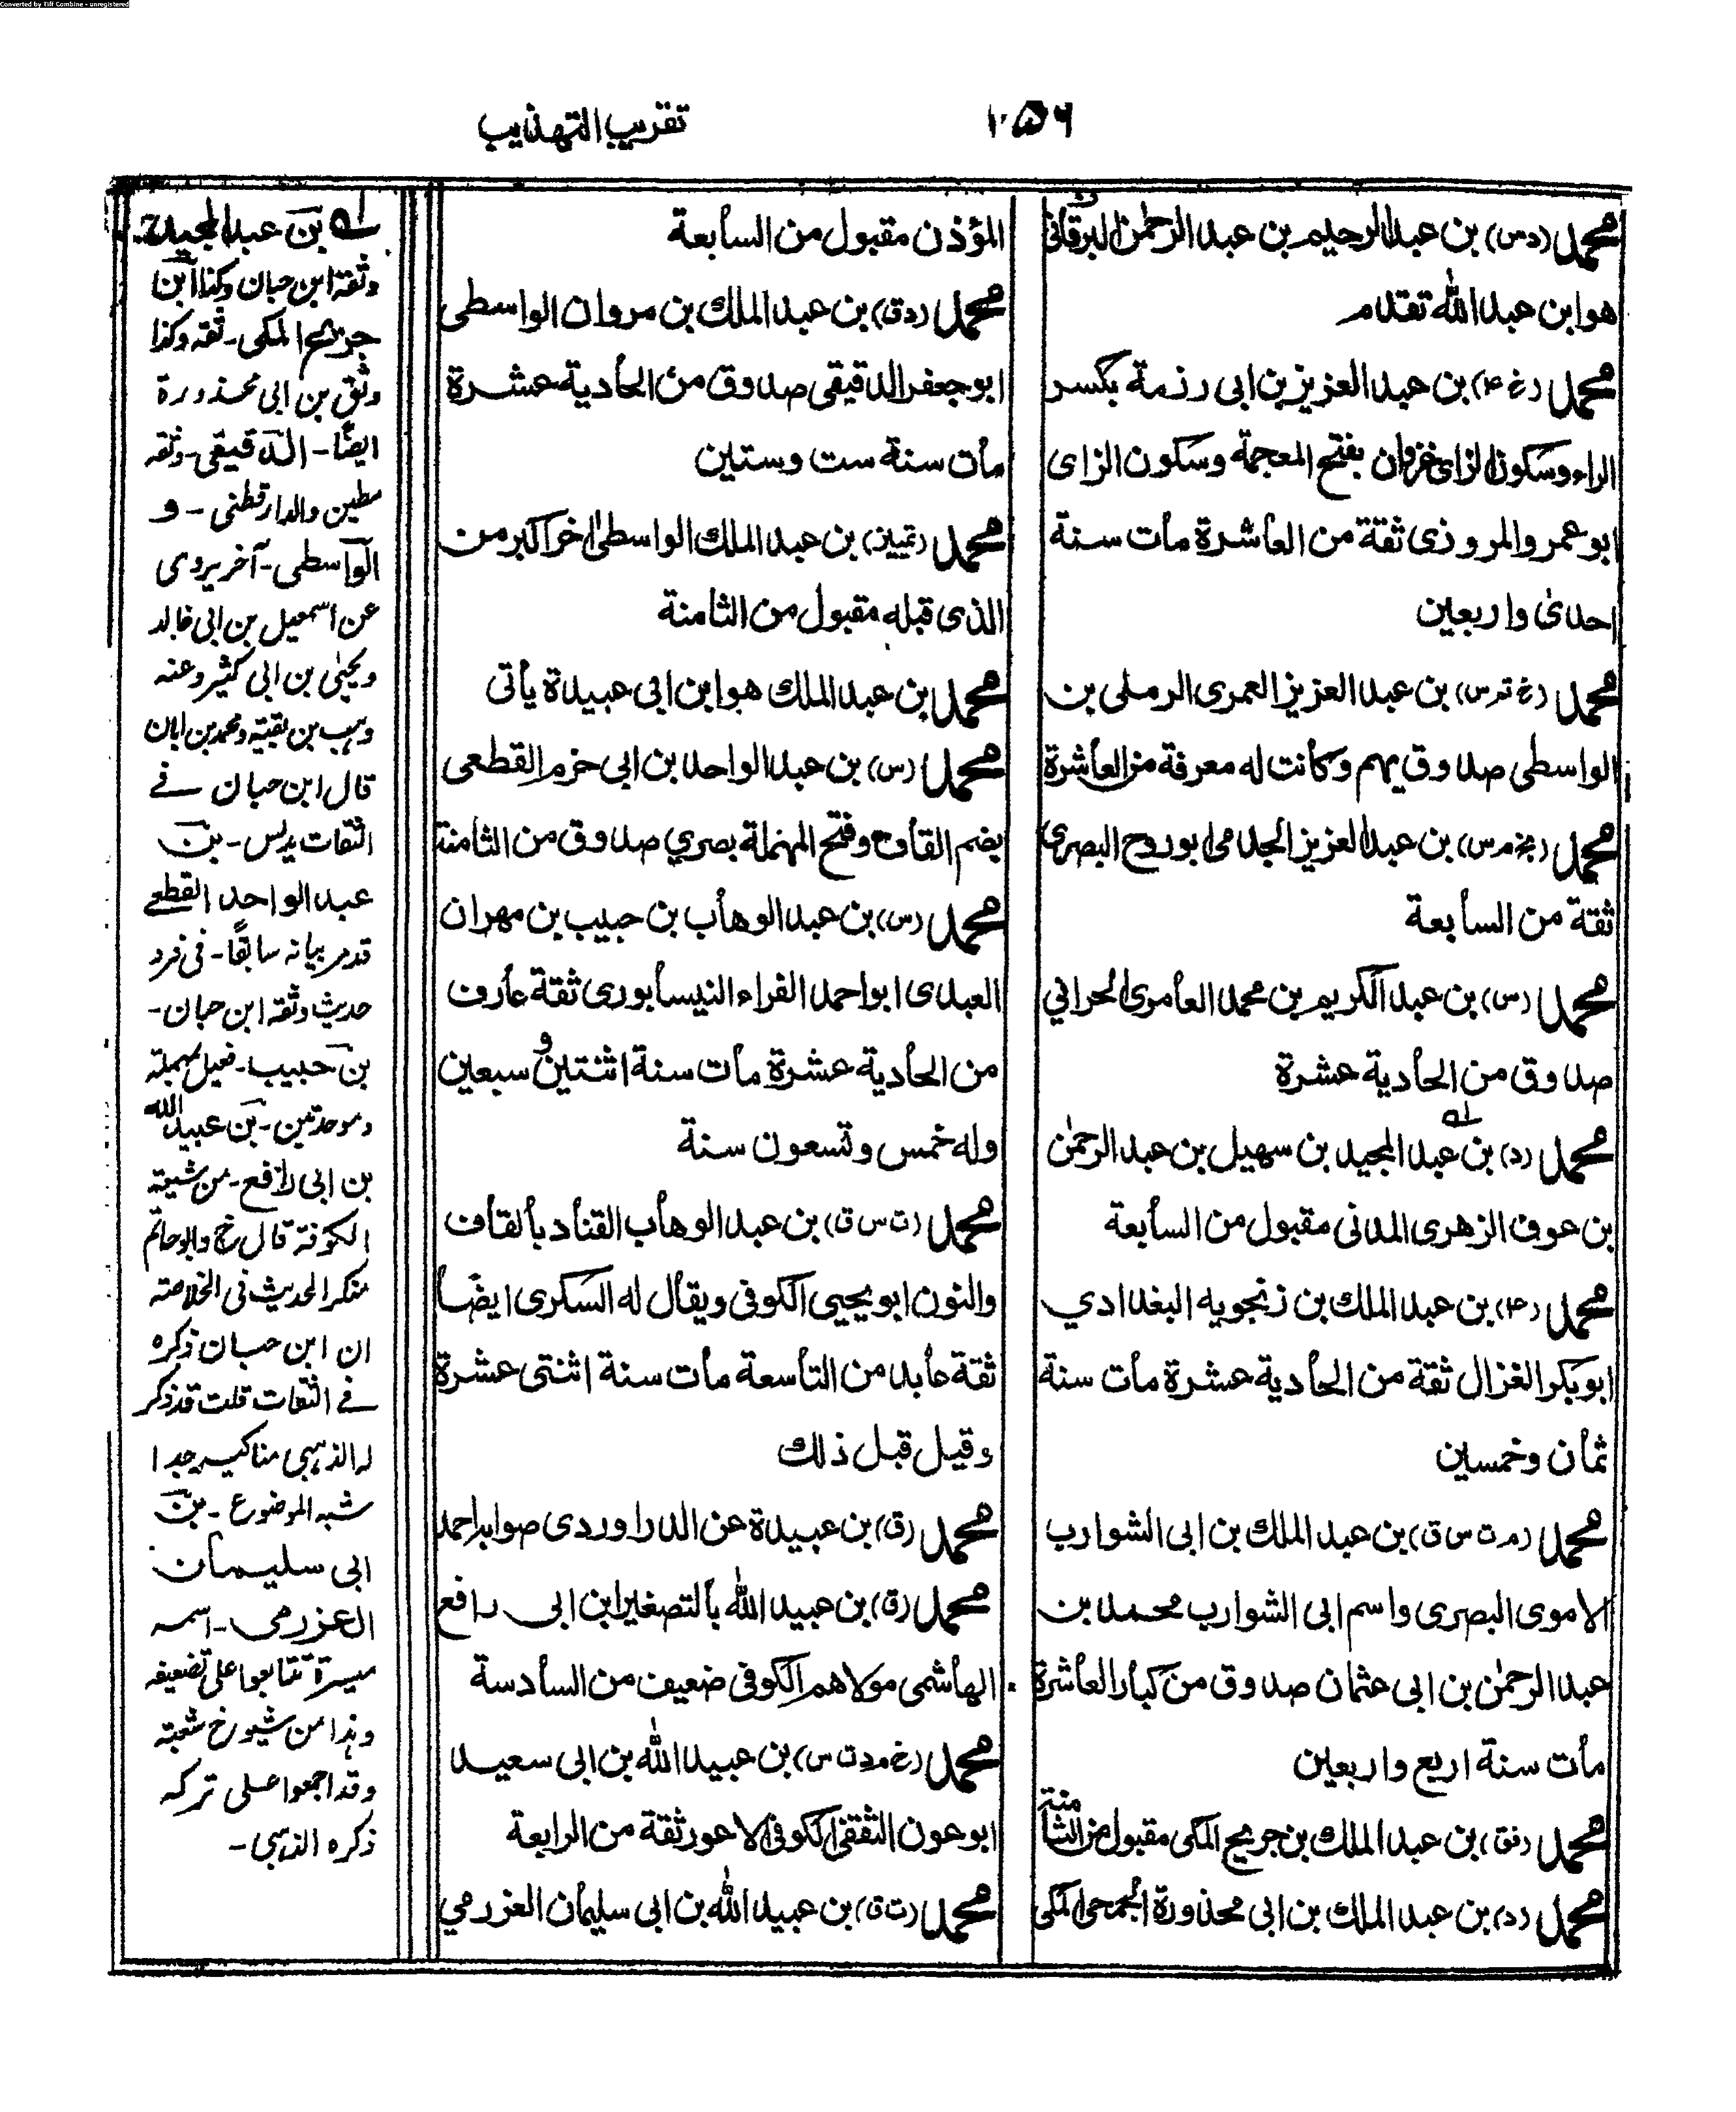 Converted by Tiff Combine - unregistered
تقريب التهذيب
محمد (د س) بن عبد الرحيم بن عبد الرحمٰن البرقاني
هو ابن عبد الله تقدم
محمد (خ ۴) بن عبد العزيز بن ابى رزمة بكسر
الراء وسكون الزاى غزوان بفتح المعجمة وسكون الزاى
ابو عمرو المروزى ثقة من العاشرة مات سنة
احدىٰ واربعين
محمد (خ تم س) بن عبد العزيز العمرى الرملى بن
الواسطى صدوق يهم وكانت له معرفة من العاشرة
محمد (بخ م س) بن عبد العزيز الجدامى ابو روح البصرى
ثقة من السابعة
محمد (س) بن عبد الكريم بن محمد العامرى الحراني
صدوق من الحادية عشرة
محمد (د) بن عبد المجيد بن سهيل بن عبد الرحمٰن
بن عوف الزهرى المدنى مقبول من السابعة
محمد (۴) بن عبد الملك بن زنجويه البغدادي
ابو بكر الغزال ثقة من الحادية عشرة مات سنة
ثمان وخمسين
محمد (م ت س ق) بن عبد الملك بن ابى الشوارب
الاموى البصرى واسم ابى الشوارب محمد بن
عبد الرحمٰن بن ابى عثمان صدوق من كبار العاشرة
مات سنة اربع واربعين
محمد (فق) بن عبد الملك بن جريج المكى مقبول من الثامنة
محمد (د) بن عبد الملك بن ابى محذورة الجمحى المكى
المؤذن مقبول من السابعة
محمد (د ق) بن عبد الملك بن مروان الواسطى
ابو جعفر الدقيقى صدوق من الحادية عشرة
مات سنة ست وستين
محمد (تمييز) بن عبد الملك الواسطى اخر اكبر من
الذى قبله مقبول من الثامنة
محمد بن عبد الملك هو ابن ابى عبيدة يأتى
محمد (س) بن عبد الواحد بن ابى حزم القطعى
بضم القاف وفتح المهملة بصري صدوق من الثامنة
محمد (س) بن عبد الوهاب بن حبيب بن مهران
العبدى ابو احمد الفراء النيسابورى ثقة عارف
من الحادية عشرة مات سنة اثنتين و سبعين
وله خمس وتسعون سنة
محمد (ت س ق) بن عبد الوهاب القناد بالقاف
والنون ابو يحيى الكوفى ويقال له السكرى ايضًا
ثقة عابد من التاسعة مات سنة اثنتى عشرة
وقيل قبل ذلك
محمد (ق) بن عبيدة عن الدراوردى صوابه احمد
محمد (ق) بن عبيد الله بالتصغير ابن ابى رافع
الهاشمى مولاهم الكوفى ضعيف من السادسة
محمد (خ م د ت س) بن عبيد الله بن ابى سعيد
ابو عون الثقفى الكوفى الاعور ثقة من الرابعة
محمد (ت ق) بن عبيد الله بن ابى سليمان العزرمي
له بن عبد المجيد
وثقه ابن حبان وكذا ابن
جريج المكى - ثقه وكذا
وثق بن ابى محذورة
ايضًا - الدقيقى - وثقه
مطين والدارقطنى - و
الواسطى - آخر يروى
عن اسمعيل بن ابى خالد
ويحيىٰ بن ابى كثير وعنه
وهب بن بقية ومحمد بن ابان
قال ابن حبان فى
الثقات يدلس - بن
عبد الواحد القطعى
قدمر بيانه سابقًا - فى فرد
حديث وثقه ابن حبان -
بن حبيب - فعيل بمهملة
وموحدتين - بن عبيد الله
بن ابى رافع - من شيعة
الكوفة قال خ وابو حاتم
منكر الحديث فى الخلاصة
ان ابن حبان ذكره
فى الثقات قلت قد ذكر
له الذهبى مناكير جدا
شبه الموضوع - بن
ابى سليمان
العزرمى - اسمه
ميسرة تتابعوا على تضعيفه
وهذا من شيوخ شعبة
وقد اجمعوا على تركه
ذكره الذهبى -